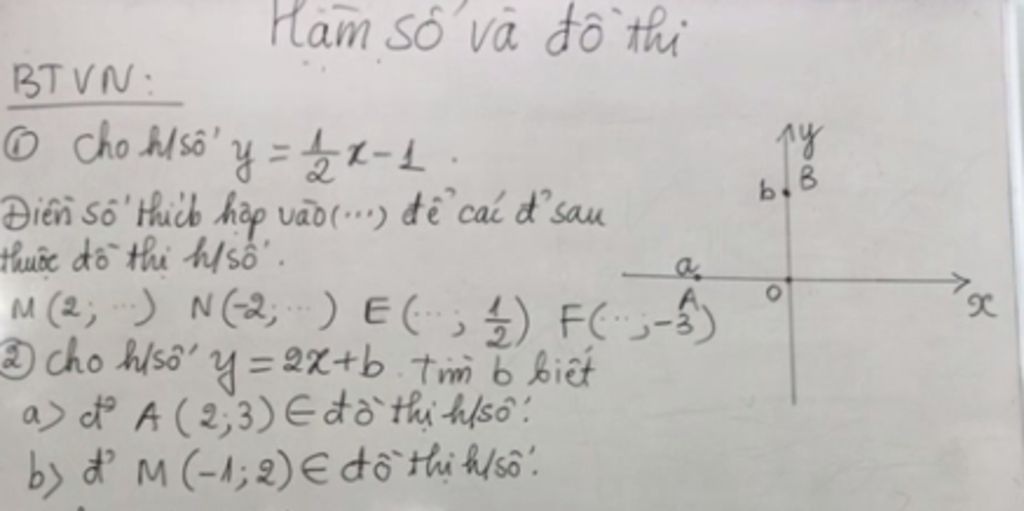 Hàm số và đồ thị
BTVN:
① Cho h/số y = 1/2 x - 1.
Điền số thích hợp vào (...) để các đ' sau
thuộc đồ thị h/số.
M (2; ...) N(-2; ...) E (...; 1/2) F(...; -3)
② Cho h/số y = 2x + b. Tìm b biết
a> đ' A (2; 3) ∈ đồ thị h/số.
b> đ' M (-1; 2) ∈ đồ thị h/số.
y
b B
a
A O
x